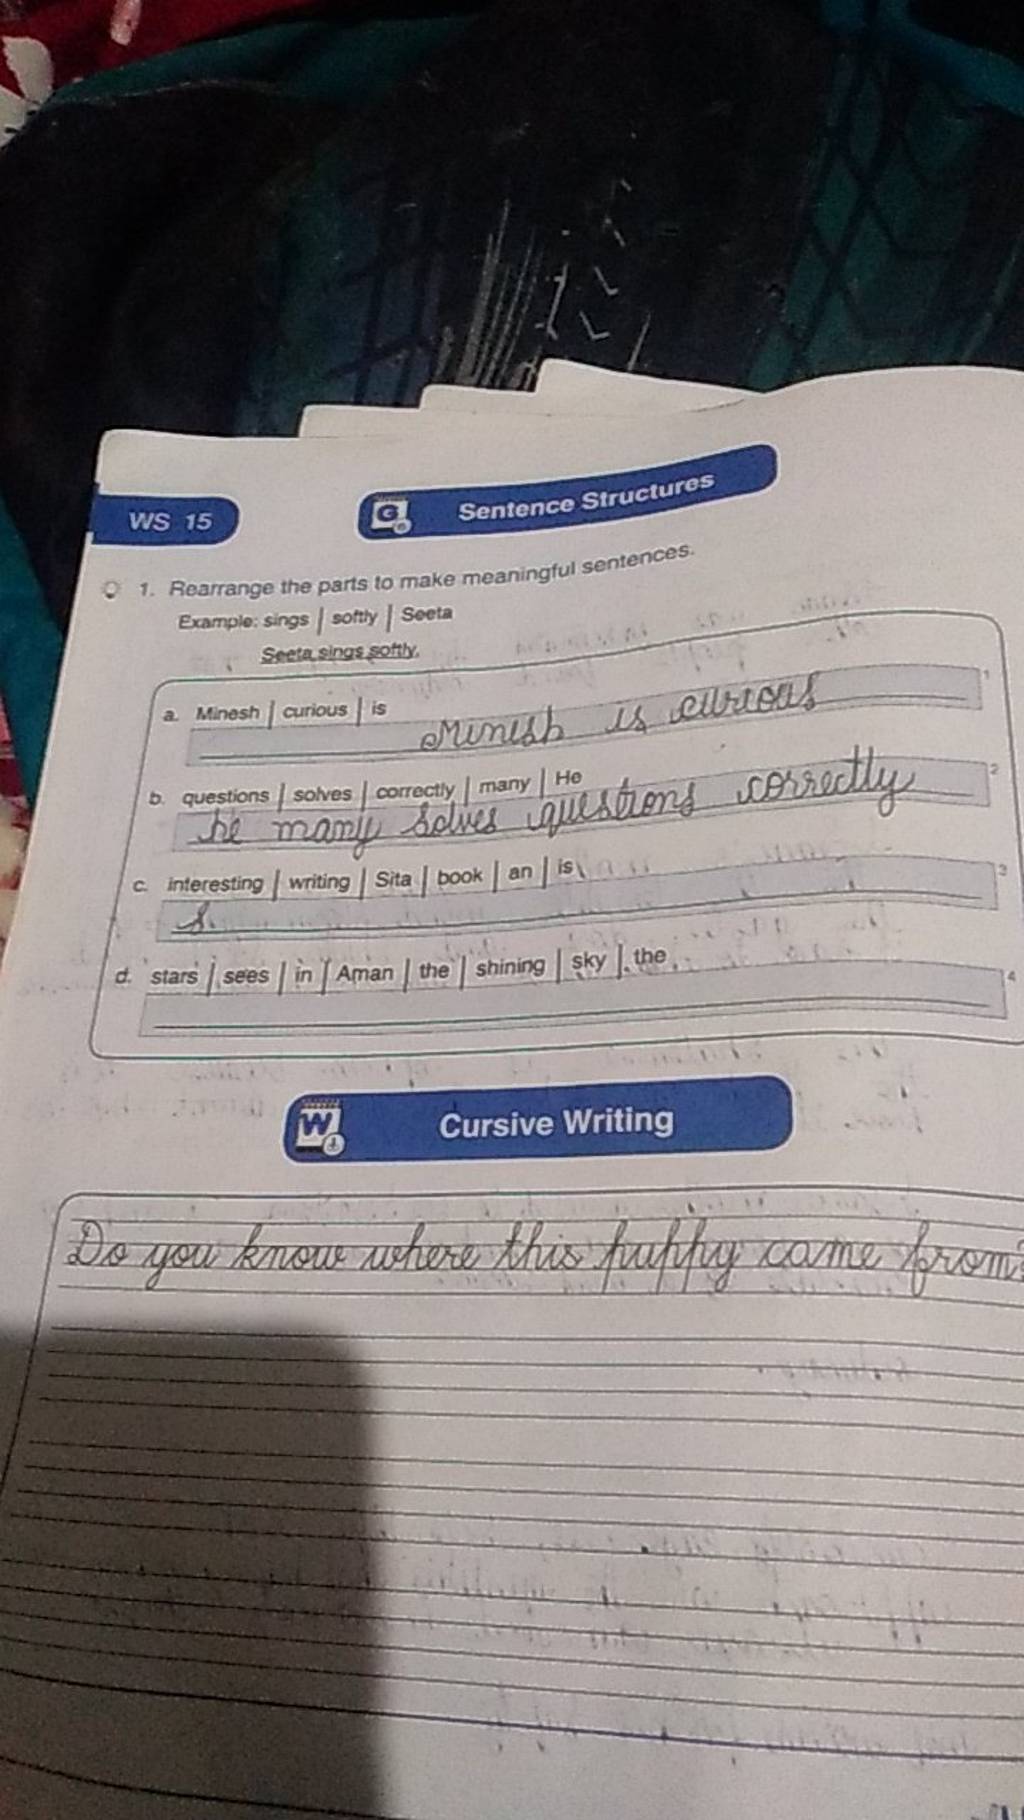 WS 15
G
Sentence Structures
1. Rearrange the parts to make meaningful sentences.
Example: sings | softly | Seeta
Seeta sings softly.
a. Minesh | curious | is
1
Minesh is curious
b. questions | solves | correctly | many | He
2
he many solves questions correctly
c. interesting | writing | Sita | book | an | is
3
s
d. stars | sees | in | Aman | the | shining | sky | the
4
W
Cursive Writing
Do you know where this puppy came from?